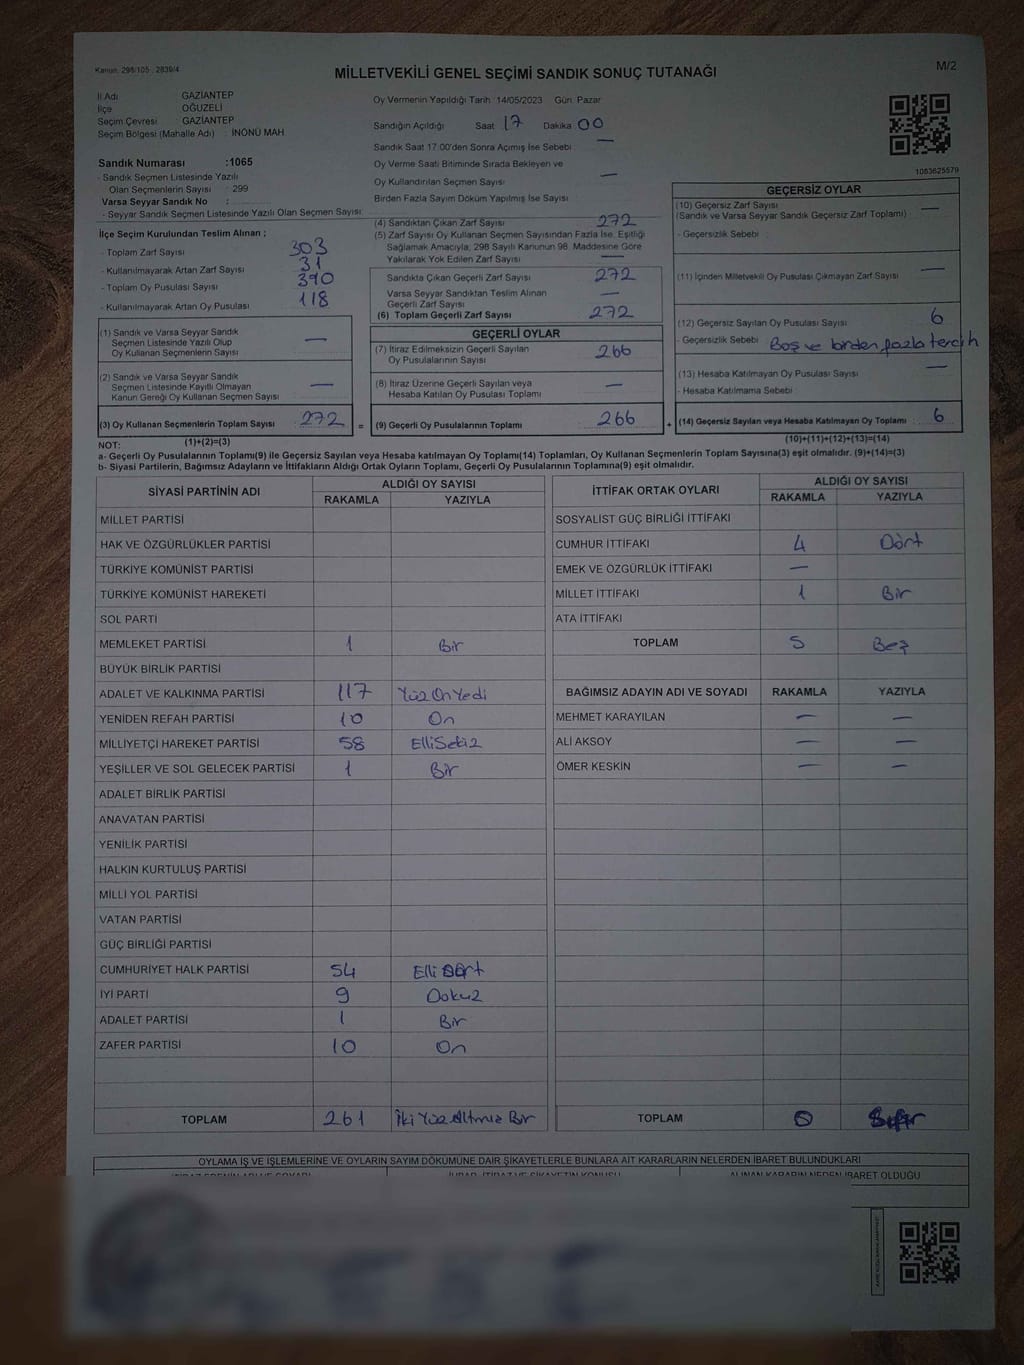 Kanun: 298/105 : 2839/4
MİLLETVEKİLİ GENEL SEÇİMİ SANDIK SONUÇ TUTANAĞI
M/2
İl Adı GAZİANTEP
İlçe OĞUZELİ
Seçim Çevresi GAZİANTEP
Seçim Bölgesi (Mahalle Adı) : İNÖNÜ MAH
Sandık Numarası :1065
- Sandık Seçmen Listesinde Yazılı
Olan Seçmenlerin Sayısı : 299
Varsa Seyyar Sandık No :
- Seyyar Sandık Seçmen Listesinde Yazılı Olan Seçmen Sayısı:
İlçe Seçim Kurulundan Teslim Alınan ;
- Toplam Zarf Sayısı 303
- Kullanılmayarak Artan Zarf Sayısı 31
- Toplam Oy Pusulası Sayısı 390
- Kullanılmayarak Artan Oy Pusulası 118
(1) Sandık ve Varsa Seyyar Sandık
Seçmen Listesinde Yazılı Olup
Oy Kullanan Seçmenlerin Sayısı —
(2) Sandık ve Varsa Seyyar Sandık
Seçmen Listesinde Kayıtlı Olmayan
Kanun Gereği Oy Kullanan Seçmen Sayısı —
(3) Oy Kullanan Seçmenlerin Toplam Sayısı 272 =
(1)+(2)=(3)
Oy Vermenin Yapıldığı Tarih :14/05/2023 Gün: Pazar
Sandığın Açıldığı Saat 17 Dakika 00
Sandık Saat 17:00'den Sonra Açımış İse Sebebi —
Oy Verme Saati Bitiminde Sırada Bekleyen ve
Oy Kullandırılan Seçmen Sayısı —
Birden Fazla Sayım Döküm Yapılmış İse Sayısı
(4) Sandıktan Çıkan Zarf Sayısı 272
(5) Zarf Sayısı Oy Kullanan Seçmen Sayısından Fazla İse, Eşitliği
Sağlamak Amacıyla; 298 Sayılı Kanunun 98. Maddesine Göre
Yakılarak Yok Edilen Zarf Sayısı —
Sandıkta Çıkan Geçerli Zarf Sayısı 272
Varsa Seyyar Sandıktan Teslim Alınan
Geçerli Zarf Sayısı —
(6) Toplam Geçerli Zarf Sayısı 272
GEÇERLİ OYLAR
(7) İtiraz Edilmeksizin Geçerli Sayılan
Oy Pusulalarının Sayısı 266
(8) İtiraz Üzerine Geçerli Sayılan veya
Hesaba Katılan Oy Pusulası Toplamı —
(9) Geçerli Oy Pusulalarının Toplamı 266 +
1083625579
GEÇERSİZ OYLAR
(10) Geçersiz Zarf Sayısı
(Sandık ve Varsa Seyyar Sandık Geçersiz Zarf Toplamı) —
- Geçersizlik Sebebi :
(11) İçinden Milletvekili Oy Pusulası Çıkmayan Zarf Sayısı —
(12) Geçersiz Sayılan Oy Pusulası Sayısı 6
- Geçersizlik Sebebi Boş ve birden fazla tercih
(13) Hesaba Katılmayan Oy Pusulası Sayısı —
- Hesaba Katılmama Sebebi
(14) Geçersiz Sayılan veya Hesaba Katılmayan Oy Toplamı 6
(10)+(11)+(12)+(13)=(14)
NOT:
a- Geçerli Oy Pusulalarının Toplamı(9) ile Geçersiz Sayılan veya Hesaba katılmayan Oy Toplamı(14) Toplamları, Oy Kullanan Seçmenlerin Toplam Sayısına(3) eşit olmalıdır. (9)+(14)=(3)
b- Siyasi Partilerin, Bağımsız Adayların ve İttifakların Aldığı Ortak Oyların Toplamı, Geçerli Oy Pusulalarının Toplamına(9) eşit olmalıdır.
SİYASİ PARTİNİN ADI ALDIĞI OY SAYISI
RAKAMLA YAZIYLA
MİLLET PARTİSİ
HAK VE ÖZGÜRLÜKLER PARTİSİ
TÜRKİYE KOMÜNİST PARTİSİ
TÜRKİYE KOMÜNİST HAREKETİ
SOL PARTİ
MEMLEKET PARTİSİ 1 Bir
BÜYÜK BİRLİK PARTİSİ
ADALET VE KALKINMA PARTİSİ 117 Yüz On Yedi
YENİDEN REFAH PARTİSİ 10 On
MİLLİYETÇİ HAREKET PARTİSİ 58 Elli Sekiz
YEŞİLLER VE SOL GELECEK PARTİSİ 1 Bir
ADALET BİRLİK PARTİSİ
ANAVATAN PARTİSİ
YENİLİK PARTİSİ
HALKIN KURTULUŞ PARTİSİ
MİLLİ YOL PARTİSİ
VATAN PARTİSİ
GÜÇ BİRLİĞİ PARTİSİ
CUMHURİYET HALK PARTİSİ 54 Elli Dört
İYİ PARTİ 9 Dokuz
ADALET PARTİSİ 1 Bir
ZAFER PARTİSİ 10 On
TOPLAM 261 İki Yüz Altmış Bir
İTTİFAK ORTAK OYLARI ALDIĞI OY SAYISI
RAKAMLA YAZIYLA
SOSYALİST GÜÇ BİRLİĞİ İTTİFAKI
CUMHUR İTTİFAKI 4 Dört
EMEK VE ÖZGÜRLÜK İTTİFAKI —
MİLLET İTTİFAKI 1 Bir
ATA İTTİFAKI
TOPLAM 5 Beş
BAĞIMSIZ ADAYIN ADI VE SOYADI RAKAMLA YAZIYLA
MEHMET KARAYILAN — —
ALİ AKSOY — —
ÖMER KESKİN — —
TOPLAM 0 Sıfır
OYLAMA İŞ VE İŞLEMLERİNE VE OYLARIN SAYIM DÖKÜMÜNE DAİR ŞİKAYETLERLE BUNLARA AİT KARARLARIN NELERDEN İBARET BULUNDUKLARI
ALINAN KARARIN NEDEN İBARET OLDUĞU